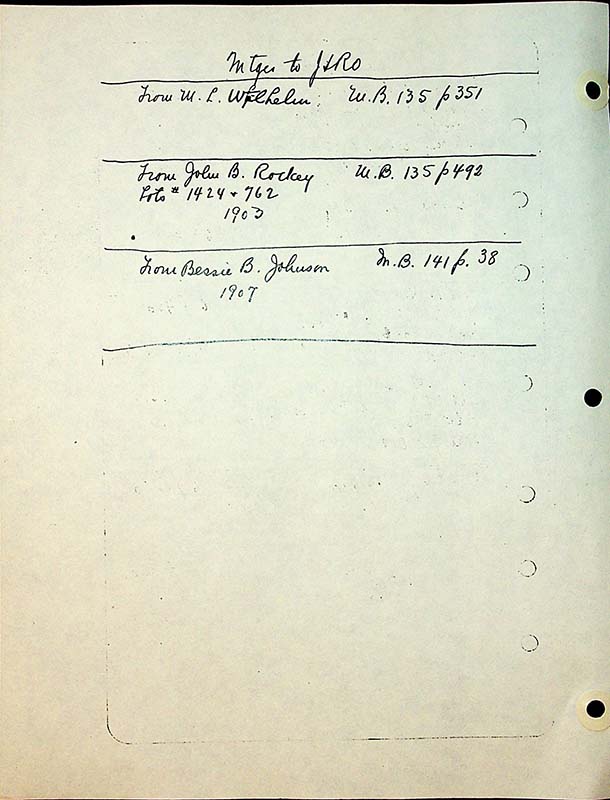 Mtges to J&RO
From M. L. Wilhelm. M.B. 135 p 351
From John B. Rockey M.B. 135 p 492
Lots # 1424 + 762
1903
From Bessie B. Johnson M.B. 141 p. 38
1907